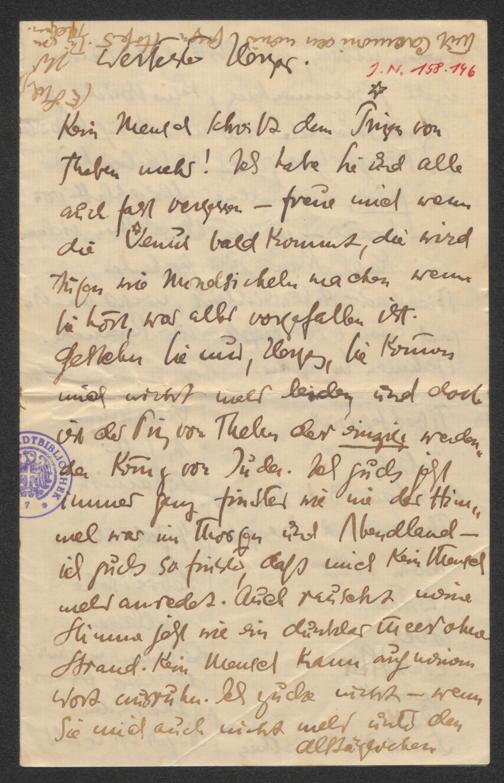 Kein Mensch schreibt dem Prinzen von
Theben mehr! Ich habe Sie und alle
auch fast vergessen – freue mich wenn
die Venus bald kommt, die wird
Augen wie Mondsicheln machen wenn
Sie hört, was alles vorgefallen ist.
Gestehn Sie mir, Sie können
mich nicht mehr leiden und doch
ist der Prinz von Theben der einzig werden„
den König von Juda. Ich gucke jetzt
immer ganz finster wie nie der Him„
mel war im Morgen und Abendland –
ich gucke so finster, daß mich kein Mensch
mehr anredet. Auch rauscht meine
Stimme jetzt wie ein dunkles Meer ohne
Strand. Kein Mensch kann auf meinem
Wort ausruhn. Ich gucke nicht – wenn
Sie mich auch nicht mehr unter den
alltäglichen
J. N. 158.146